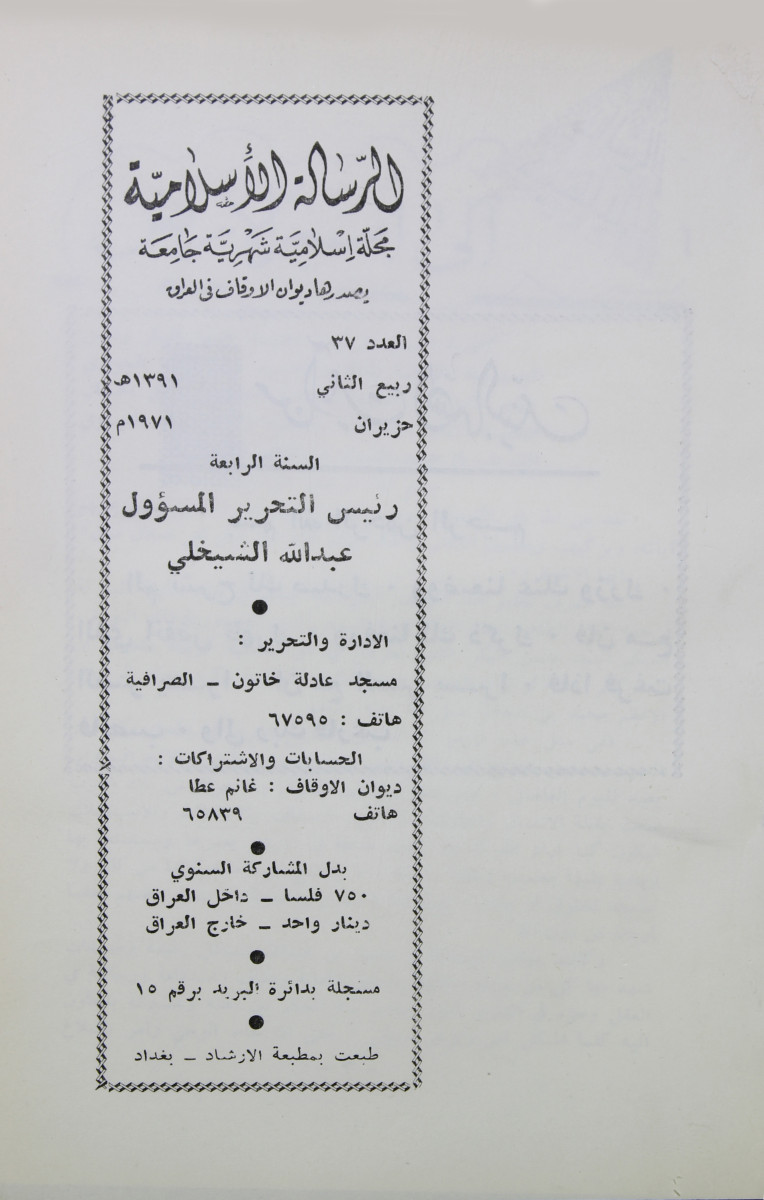 الرسالة الأسلامية
مجلة إسلامية شهرية جامعة
يصدرها ديوان الاوقاف في العراق
العدد ٣٧
ربيع الثاني ١٣٩١هـ
حزيران ١٩٧١م
السنة الرابعة
رئيس التحرير المسؤول
عبدالله الشيخلي
الادارة والتحرير :
مسجد عادلة خاتون ــ الصرافية
هاتف : ٦٧٥٩٥
الحسابات والاشتراكات :
ديوان الاوقاف : غانم عطا
هاتف ٦٥٨٣٩
بدل المشاركة السنوي
٧٥٠ فلسا ــ داخل العراق
دينار واحد ــ خارج العراق
مسجلة بدائرة البريد برقم ١٥
طبعت بمطبعة الارشاد ــ بغداد